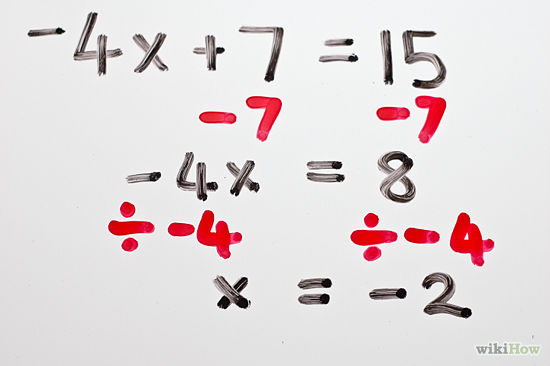 -4x + 7 = 15
-7 -7
-4x = 8
÷ -4 ÷ -4
x = -2
wikiHow